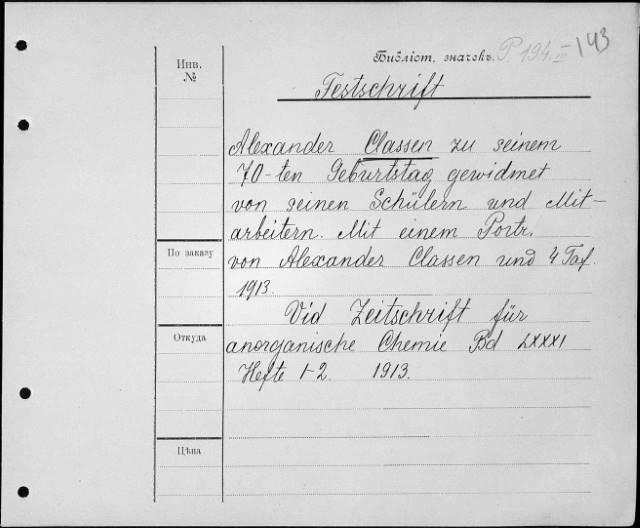 Инв.
№
Библіот. значекъ. P. 194 IV 143
Festschrift
Alexander Classen zu seinem
70-ten Geburtstag gewidmet
von seinen Schülern und Mit-
arbeitern. Mit einem Portr.
По заказу
von Alexander Classen und 4 Taf.
1913.
Vid Zeitschrift für
Откуда
anorganische Chemie Bd LXXXI
Hefte 1-2. 1913.
Цѣна